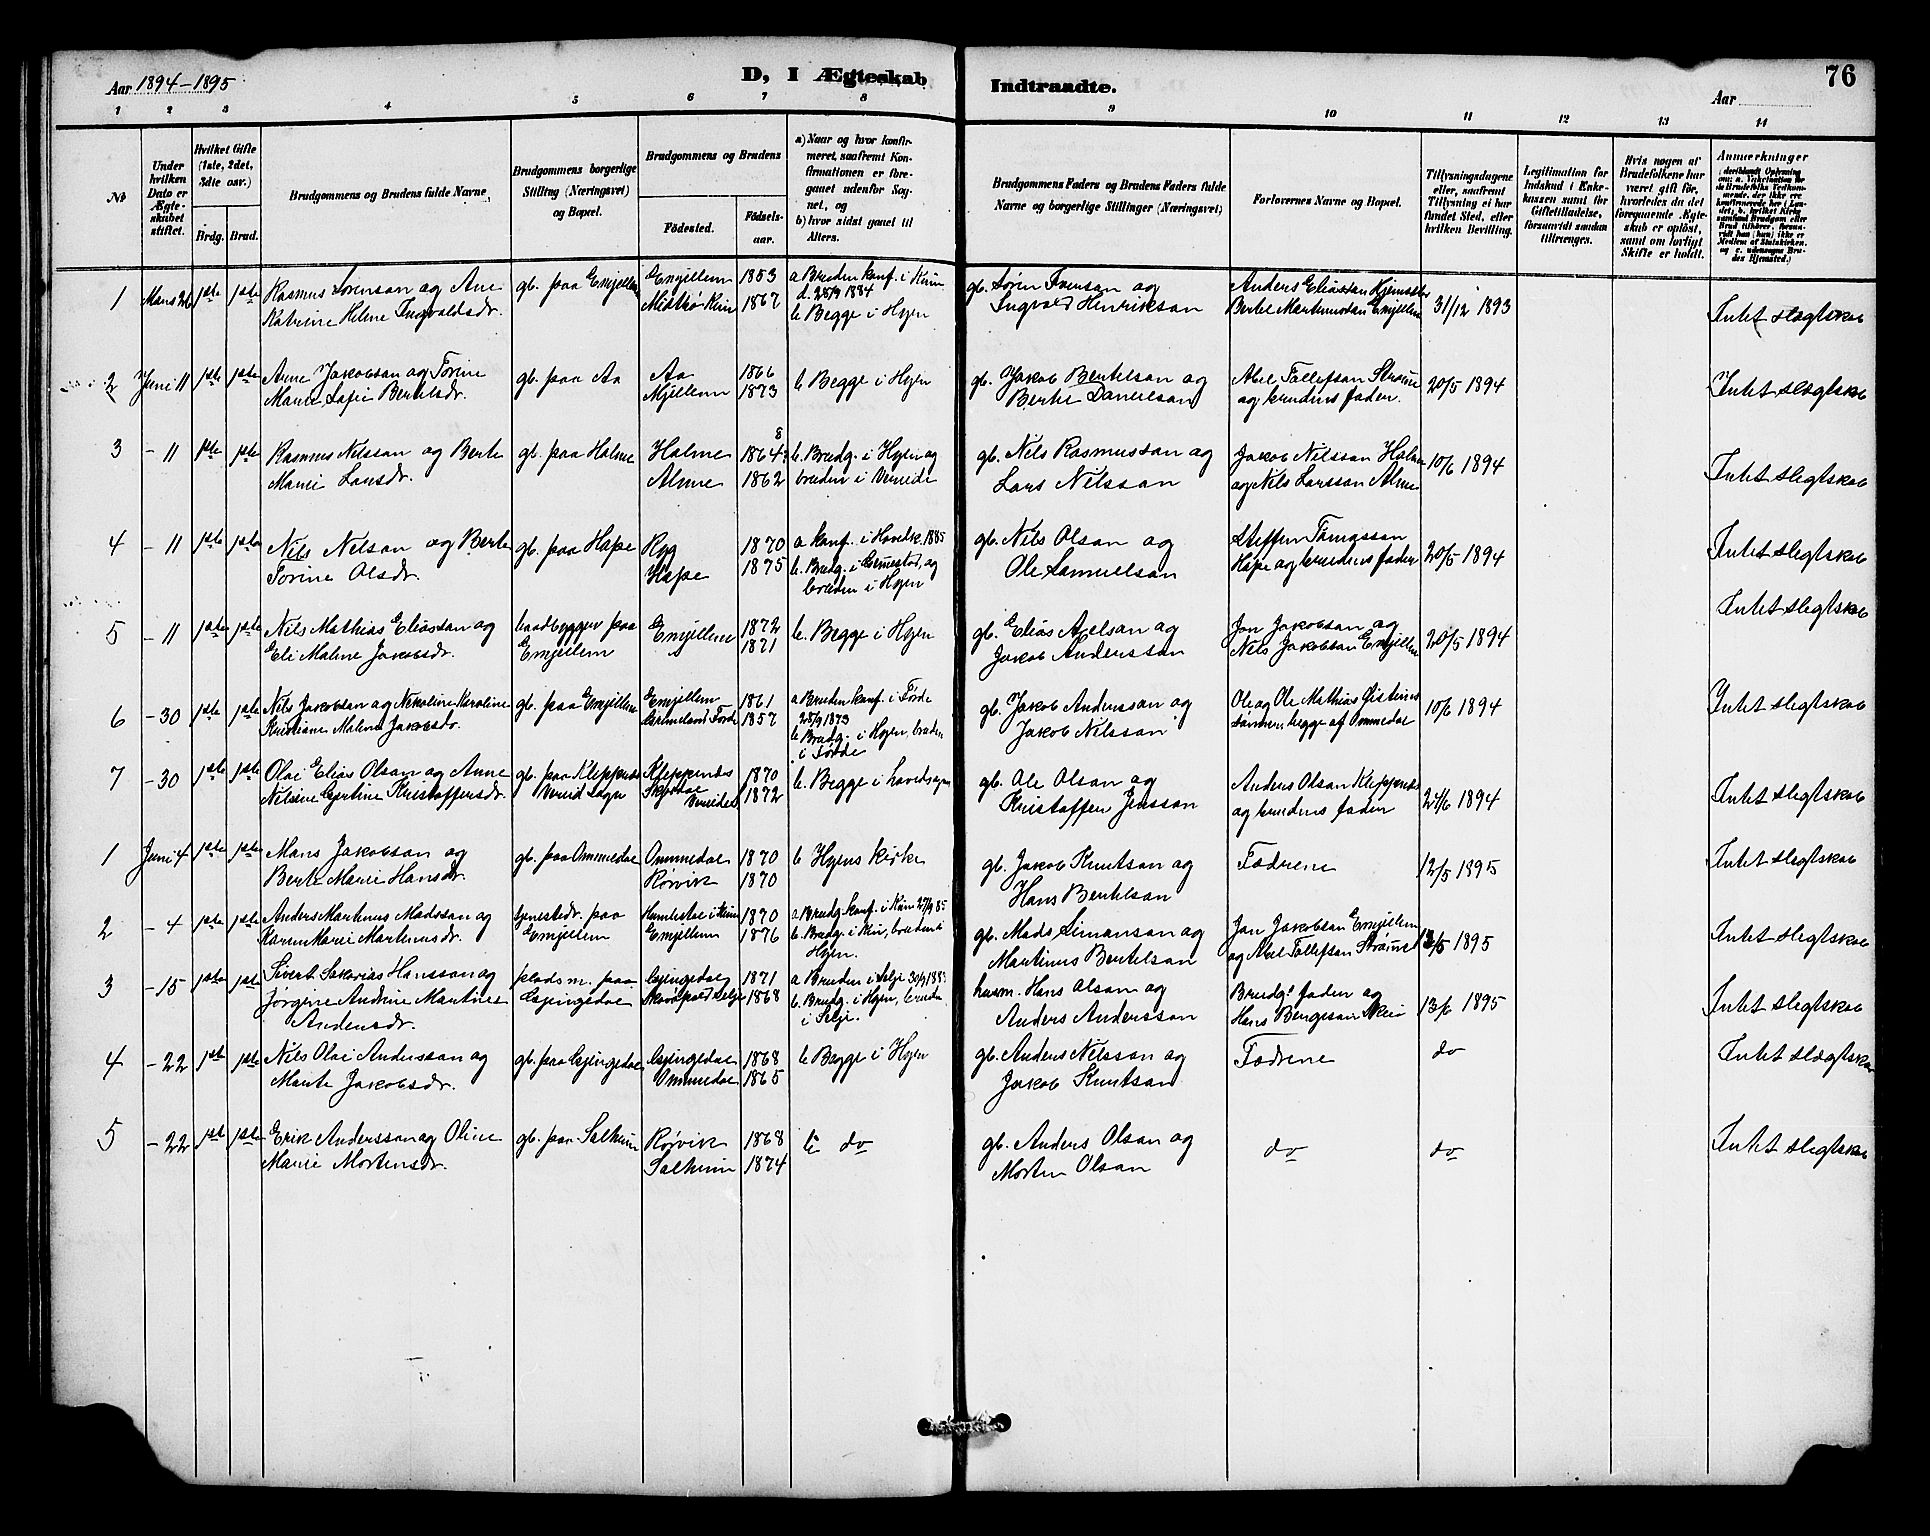 Aar 1894-1895
D, I Ægteskab
Indtraadte.
Aar
76
1 2 3 4 5 6 7 8 9 10 11 12 13 14
No
Under hvilken Dato er Ægteskabet stiftet.
Hvilket Gifte (1ste, 2det, 3die osv.)
Brdg. Brud.
Brudgommens og Brudens fulde Navne.
Brudgommens borgerlige Stilling (Næringsvei) og Bopæl.
Brudgommens og Brudens
Fødested.
Fødselsaar.
a) Naar og hvor konfirmeret, saafremt Konfirmationen er foregaaet udenfor Sognet, og
b) hvor sidst gaaet til Alters.
Brudgommens Faders og Brudens Faders fulde Navne og borgerlige Stillinger (Næringsvei)
Forlovernes Navne og Bopæl.
Tillysningsdagene eller, saafremt Tillysning ei har fundet Sted, efter hvilken Bevilling.
Legitimation for Indskud i Enkekassen samt for Giftetilladelse, forsaavidt saadan tiltrænges.
Hvis nogen af Brudefolkene har været gift før, hvorledes da det foregaaende Ægteskab er opløst, samt om lovligt Skifte er holdt.
Anmærkninger
1 Mars 26 1ste 1ste Rasmus Sørenson og Ane
Katrine Helene Ingvaldsdr.
gb. paa Emjellem
Emjellem 1853
Midtbø Kinn 1867
a Bruden konf. i Kinn
d. 28/9 1884
b Begge i Hyen
gb. Søren Iverson og
Ingvald Henrikson
Anders Eliasson
Bertel Martinusson Emjellem
31/12 1893
Intet slegtskab
2 Juni 11 1ste 1ste Arne Jakobson og Torine
Marie Sofie Bertelsdr.
gb. paa Aa
Aa 1866
Mjellem 1873
b Begge i Hyen
gb. Jakob Bertelson og
Bertel Danielson
Abel Tollefson Strømme
og brudens fader.
20/5 1894
Intet slegtskab
3 - 11 1ste 1ste Rasmus Nilsson og Berte
Marie Larsdr.
gb. paa Holme
Holme 1864
Alme 1862
b. Brudg. i Hyen og
bruden i Vereide
gb. Nils Rasmusson og
Lars Nilsson
Jakob Nilsson Holme
og Nils Larsson Alme
10/6 1894
Intet slegtskab
4 - 11 1ste 1ste Nils Nilson og Berte
Torine Olsdr.
gb. paa Hope
Ryg 1870
Hope 1875
a konf. i Hovedk. 1885
b. Brudg. i Gimestad, og
bruden i Hyen
gb. Nils Olson og
Ole Samuelson
Steffen Tomasson
Hope og brudens fader
20/5 1894
Intet slegtskab
5 - 11 1ste 1ste Nils Mathias Eliasson og
Eli Malene Jakobsdr.
baadbygger paa
Emjellem
Emjellem 1872
1871
b. Begge i Hyen
gb. Elias Abelson og
Jakob Andersson
Jon Jakobson og
Nils Jakobson Emjellem
20/5 1894
Intet slegtskab
6 - 30 1ste 1ste Nils Jakobson og Nikoline Karoline
Kristiane Malene Jakobsdr.
gb. paa Emjellem
Emjellem 1861
Førde 1857
a Bruden konf. i Førde
28/9 1873
b Brudg. i Hyen, bruden
i Førde
gb. Jakob Andersson og
Jakob Nilsson
Ole og Ole Mathias Øistens
sønner begge af Ommedal
10/6 1894
Intet slegtskab
7 - 30 1ste 1ste Olai Elias Olson og Anne
Nelsine Gjertine Kristoffersdr.
gb. paa Kleppenes
Vereid Sogn
Kleppenes 1870
Skjerdal Vereide 1872
b. Begge i hovedsogn
gb. Ole Olson og
Kristoffer Jensson
Anders Olson Kleppenes
og brudens fader
24/6 1894
Intet slegtskab
1 Juni 4 1ste 1ste Mons Jakobson og
Berte Marie Hansdr.
gb. paa Ommedal
Ommedal 1870
Rørvik 1870
b Hyens kirke
gb. Jakob Knutson og
Hans Bertelson
Fædrene
12/5 1895
Intet slegtskab
2 - 4 1ste 1ste Anders Martinus Madsson og
Karen Marie Martinusdr.
tjenestedr. paa
Emjellem
Humlestøl i Kinn 1870
Emjellem 1876
a Brudg. konf. i Kinn 27/9 85
b. Brudg. i Kinn, bruden i
Hyen.
gb. Mads Simonson og
Martinus Bertelson
Jon Jakobson Emjellem
og Abel Tollefson Strømme
12/5 1895
Intet slegtskab
3 - 15 1ste 1ste Sivert Sakarias Hansson og
Jørgine Andrine Martines
Andersdr.
pladsm. paa
Gjengedal
Gjengedal 1871
Selje 1868
a Bruden i Selje 30/9 1883
b. Brudg. i Hyen, bruden
i Selje.
husm. Hans Olson og
Anders Andersson
Brudgs fader og
Hans Bergeson Skei
13/6 1895
Intet slegtskab
4 - 22 1ste 1ste Nils Olai Andersson og
Marte Jakobsdr.
gb. paa Gjengedal
Gjengedal 1868
Ommedal 1865
b Begge i Hyen
gb. Anders Nilsson og
Jakob Knutson
Fædrene
do
Intet slegtskab
5 - 22 1ste 1ste Erik Andersson og Oline
Marie Mortensdr.
gb. paa Solheim
Rørvik 1868
Solheim 1874
b do
gb. Anders Olson og
Morten Olson
do
do
Intet slegtskab